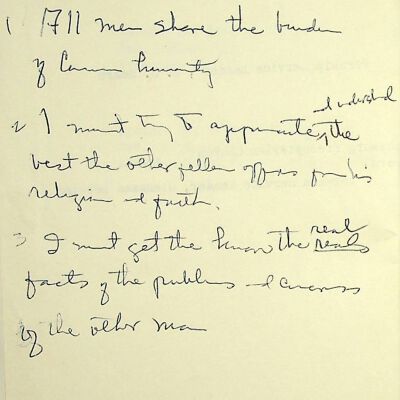 1 All men share the burden
of Common humanity
and understand
2 I must try to appreciate, the
best the other fellow offers from his
religion and faith.
real
3 I must get the know the needs
facts of the problems and concerns
of the other man